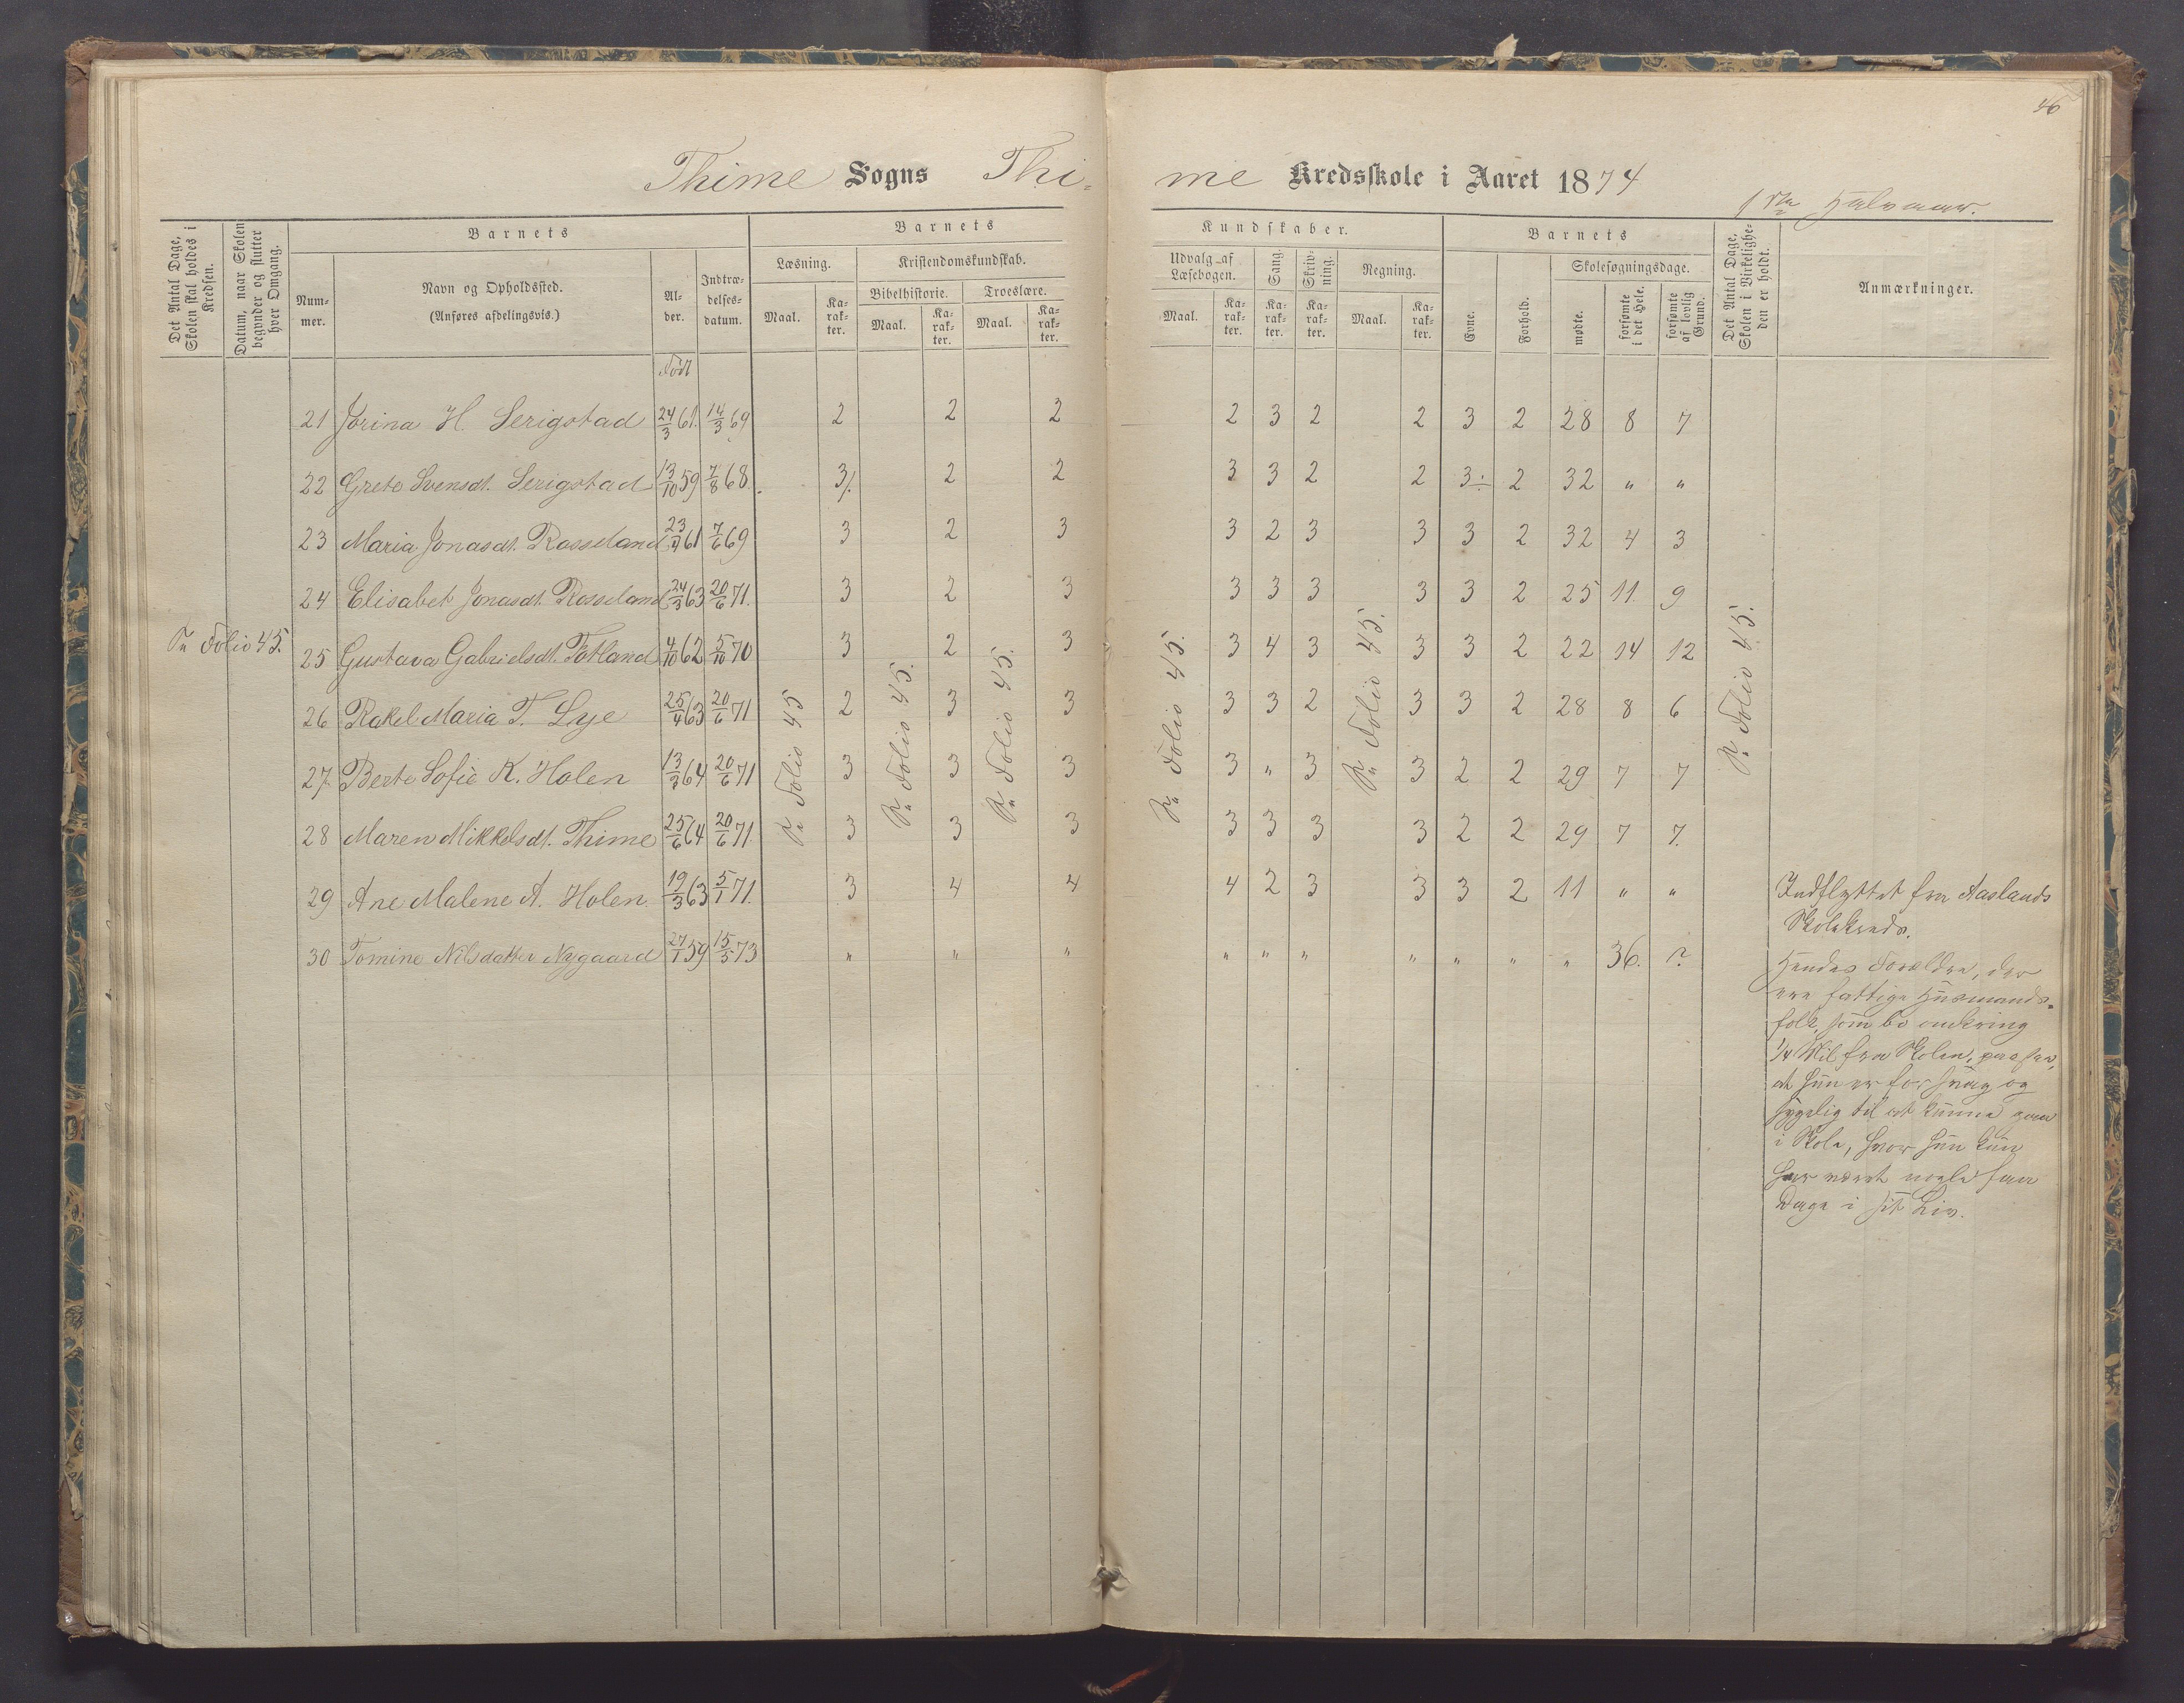 46
Thime Sogns Thi- me Kredsskole i Aaret 1874
1ste Halvaar.
Det Antal Dage, Skolen skal holdes i Kredsen.
Datum, naar Skolen begynder og slutter hver Omgang.
Barnets
Num-mer.
Navn og Opholdssted.
(Anføres afdelingsvis.)
Al-der.
Indtræ-delses-datum.
Barnets
Læsning.
Maal.
Ka-rak-ter.
Kristendomskundskab.
Bibelhistorie.
Maal.
Ka-rak-ter.
Troeslære.
Maal.
Ka-rak-ter.
Kundskaber.
Udvalg af Læsebogen.
Maal.
Ka-rak-ter.
Sang.
Ka-rak-ter.
Skriv-ning.
Ka-rak-ter.
Regning.
Maal.
Ka-rak-ter.
Barnets
Evne.
Forhold.
Skolesøgningsdage.
mødte.
forsømte i det Hele.
forsømte af lovlig Grund.
Det Antal Dage, Skolen i Virkelighe-den er holdt.
Anmærkninger.
Født
21 Jorina H. Serigstad 24/3 61. 14/3 69 2 2 2 2 3 2 2 3 2 28 8 7
22 Grete Svensdt. Serigstad 13/10 59 7/8 68. 3/. 2 2 3 3 2 2 3÷ 2 32 " "
23 Maria Jonasdt. Rosseland 23/4 61 7/6 69 3 2 3 3 2 3 3 3 2 32 4 3
24 Elisabet Jonasdt. Rosseland 24/3 63 20/6 71. 3 2 3 3 3 3 3 3 2 25 11. 9
25 Gustava Gabrielsdt. Totland 4/10 62 5/10 70 3 2 3 3 4 3 3 3 2 22 14 12
26 Rakel Maria T. Lye 25/4 63 20/6 71 2 3 3 3 3 2 3 3 2 28 8 6
27. Berte Sofie K. Holen 13/3 64 20/6 71 3 3 3 3 " 3 3 2 2 29 7 7
28 Maren Mikkelsdt. Thime 25/6 64 20/6 71. 3 3 3 3 3 3 3 2 2 29 7 7.
29 Ane Malene A. Holen 19/3 63 5/1 71. 3 4 4 4 2 3 3 3 2 11 " "
30 Tomine Nilsdatter Nygaard 27/1 59 15/5 73 " " " " " " " " " " 36. ?
Folio 45.
Folio 45
Folio 45.
Folio 45.
Folio 45.
Folio 45.
Folio 45.
Indflyttet fra Aaslands
Skolekreds.
Hendes Forældre, der
ere fattige Husmands-
folk, som bo omkring
1/4 Mil fra Skolen,
at hun er for svag og
sygelig til at kunne gaa
i Skole, hvor hun kun
har været nogle faa
Dage i sit Liv.